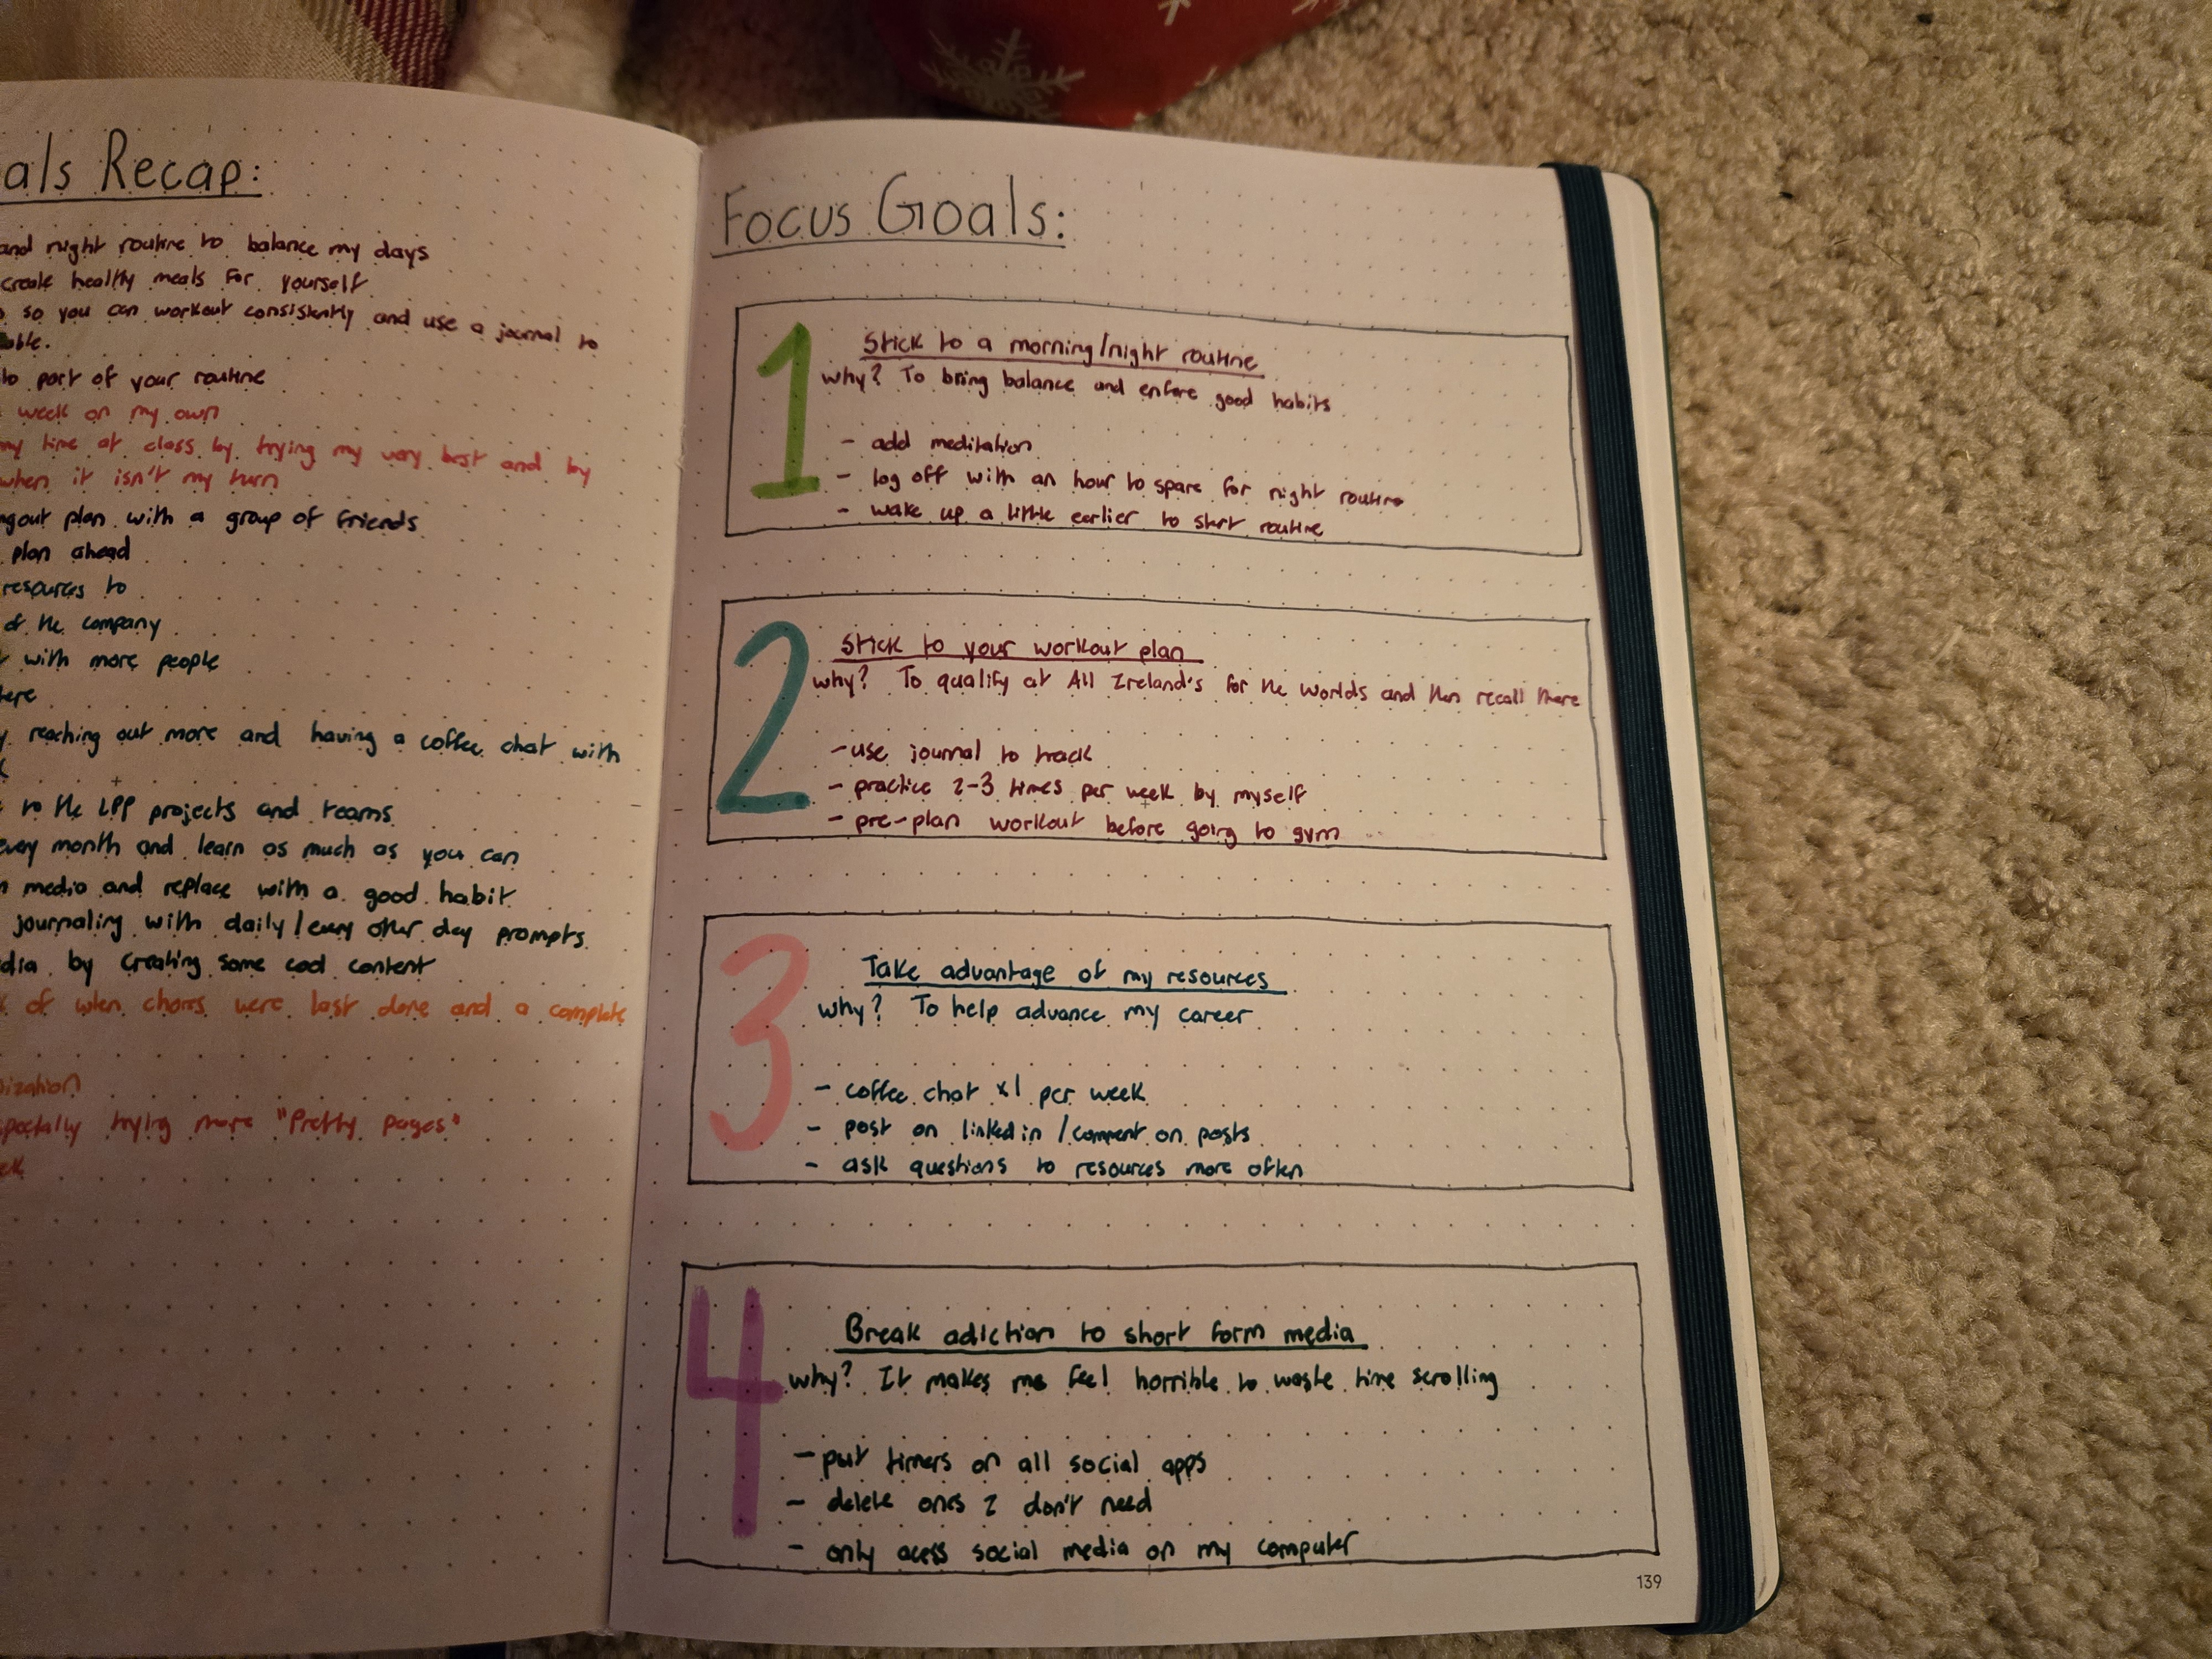 als Recap:
and night routine to balance my days
create healthy meals for yourself
so you can workout consistently and use a journal to
able.
to part of your routine
week on my own
my time at class by trying my very best and by
when it isn't my turn
ngout plan with a group of friends
plan ahead
resources to
of the company
with more people
here
y reaching out more and having a coffee chat with
k
to the LPP projects and teams
every month and learn as much as you can
n media and replace with a good habit
journaling with daily/every other day prompts
dia by creating some cool content
k of when chores were last done and a complete
ization
specially trying more "Pretty pages"
ek
Focus Goals:
1
Stick to a morning/night routine
why? To bring balance and enfore good habits
- add meditation
- log off with an hour to spare for night routine
- wake up a little earlier to start routine
2
Stick to your workout plan
why? To qualify at All Ireland's for the worlds and then recall there
- use journal to track
- practice 2-3 times per week by myself
- pre-plan workout before going to gym
3
Take advantage of my resources
why? To help advance my career
- coffee chat x1 per week
- post on linkedin /comment on posts
- ask questions to resources more often
4
Break adiction to short form media
why? It makes me feel horrible to waste time scrolling
- put timers on all social apps
- delete ones I don't need
- only acess social media on my computer
139